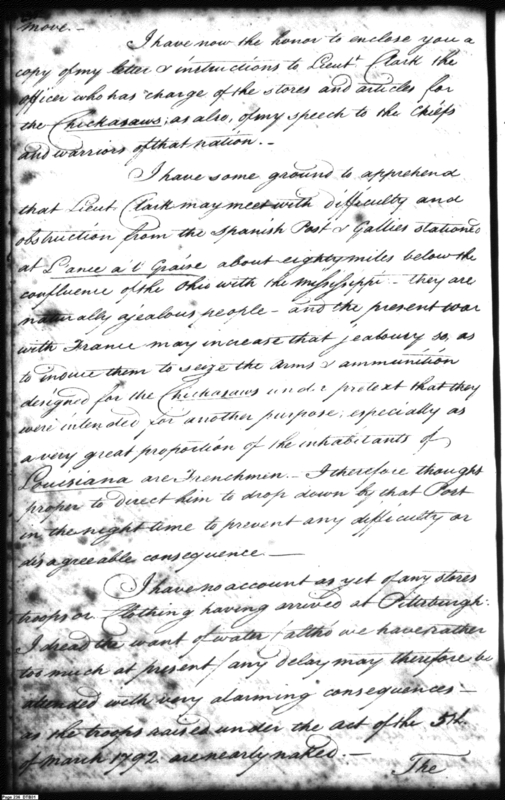 move.—
I have now the honor to enclose you a
copy of my letter & instructions to Lieut. Clark the
officer who has charge of the stores and articles for
the Chickasaws; as also, of my speech to the Chiefs
and warriors of that nation.—
I have some ground to apprehend
that Lieut. Clark may meet with difficulty and
obstruction from the Spanish Post & Gallies stationed
at L'ance a' l' Graise about eighty miles below the
confluence of the Ohio with the Mississippi — they are
naturally a jealous people — and the present war
with France may increase that jealousy so, as
to induce them to seize the Arms & ammunition
designed for the Chickasaws under pretext that they
were intended for another purpose; especially as
a very great proportion of the inhabitants of
Louisiana are Frenchmen.— I therefore thought
proper to direct him to drop down by that Post
in the night time to prevent any difficulty or
disagreeable consequence —
I have no account as yet of any stores
troops or Clothing having arrived at Pittsburgh.
I dread the want of water (altho' we have rather
too much at present) any delay may therefore be
attended with very alarming consequences —
as the troops raised under the act of the 5th.
of March 1792 are nearly naked.—
The